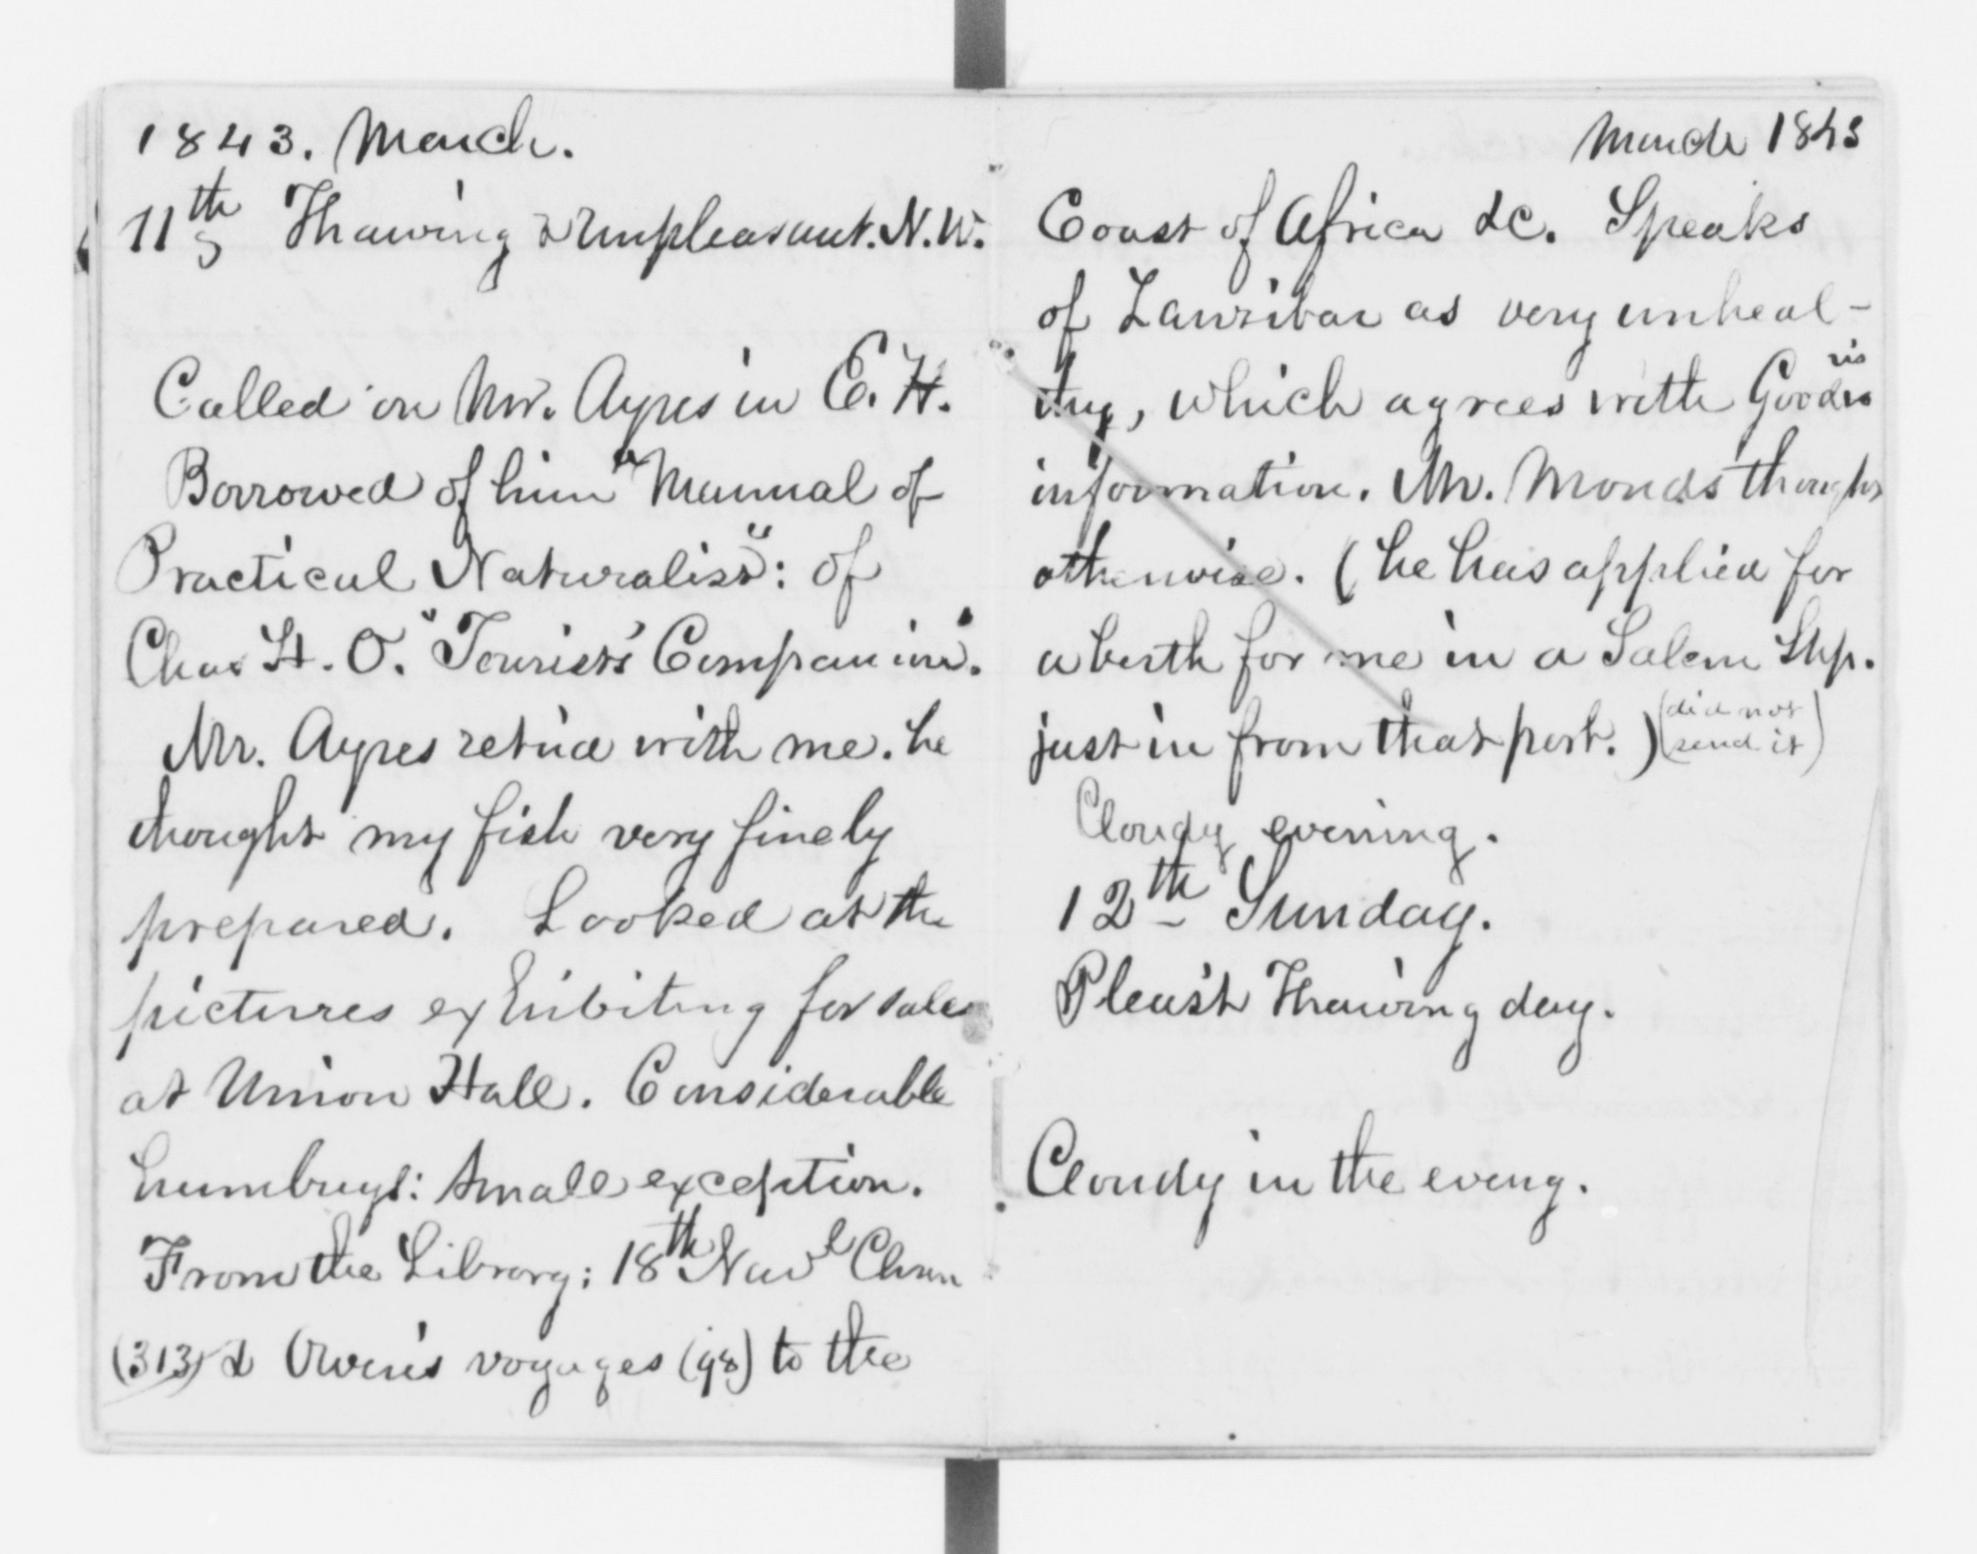 1843. March.
11th Thawing & Unpleasant. N.W.
Called on Mr. Ayres in E. H.
Borrowed of him "Manual of
Practical Naturalist": of
Chas H. O. "Tourist's Companion".
Mr. Ayres ret'd with me. he
thought my fish very finely
prepared. Looked at the
pictures exhibiting for sale
at Union Hall. Considerable
humbugs: small exception.
From the Library: 18th Navl Chron
(313) & Owen's voyages (98) to the
March 1843
Coast of Africa &c. Speaks
of Zanzibar as very unheal-
thy, which agrees with
information. Mr. Monds thought
otherwise. (he has applied for
a berth for me in a Salem Shp.
just in from that port.) (did not
send it)
Cloudy evening.
12th Sunday.
Pleas't Thawing day.
Cloudy in the eveng.